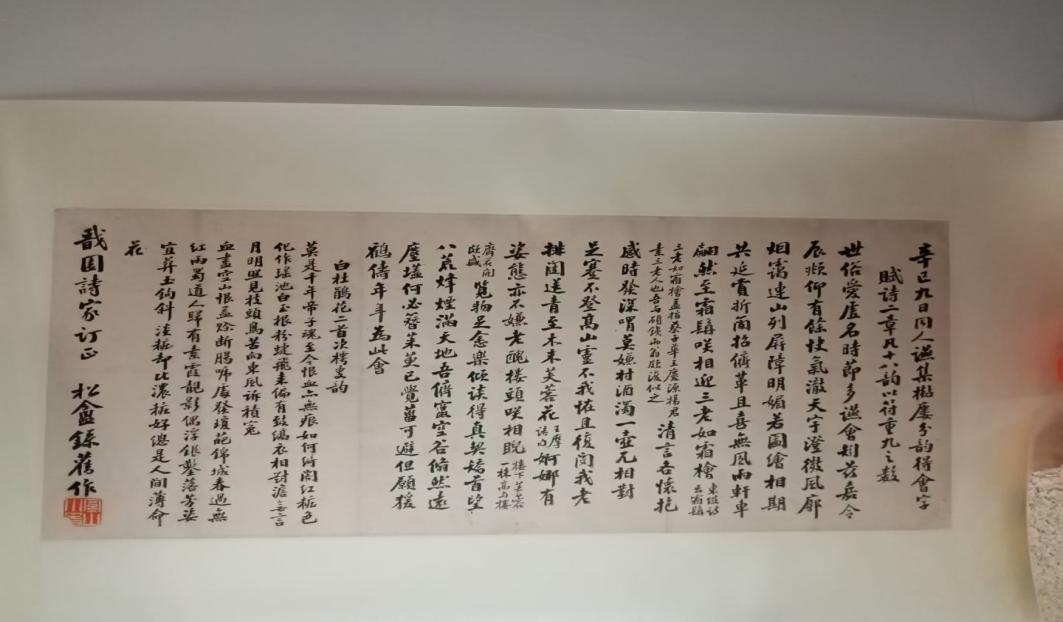 辛巳九日同人讌集揭屢分韵得會字
賦詩二章凡十八韵以符重九之數
世俗愛虛名時節多讌會矧茲嘉令
辰頫仰有餘快氣澈天宇澄微風廓
烟靄連山列屏障明媚若圖繪相期
共延賞折簡招儕輩且喜無風雨軒車
翩然至霜鬚咲相迎三老如霜檜
清言吾懷抱
感時發深喟莫嫌村酒濁一壺兀相對
足蹇不登高山靈不我怪且復閉我老
排闥送青至木末芙蓉花 婀娜有
姿態亦不嫌老醜樓頭咲相睨
覽物足念樂傾談得真契矯首望
八荒烽煙滿天地吾儕寓空谷翛然遠
塵壒何必簪茱萸已覺菑可避但願猿
鶴儔年年為此會
白杜鵑花二首次樗叟韵
莫是千年帝子魂至今恨血六無痕如何絝閣紅粧色
化作瑤池白玉根粉蜨飛來偏有致縞衣相對澹無言
月明照見枝頭鳥苦向東風訴積寃
血盡空山恨孟賒斷腸嗁處發瓊葩錦城春過無
紅雨蜀道人歸有素霞靚影偶浮銀鑿落芳姿
宜葬玉鉤斜淡粧却比濃粧好總是人間薄命
花
戩園詩家訂正 松盦錄舊作